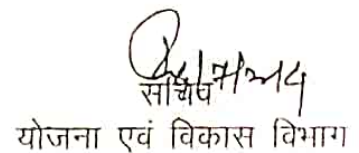 सचिव
योजना एवं विकास विभाग